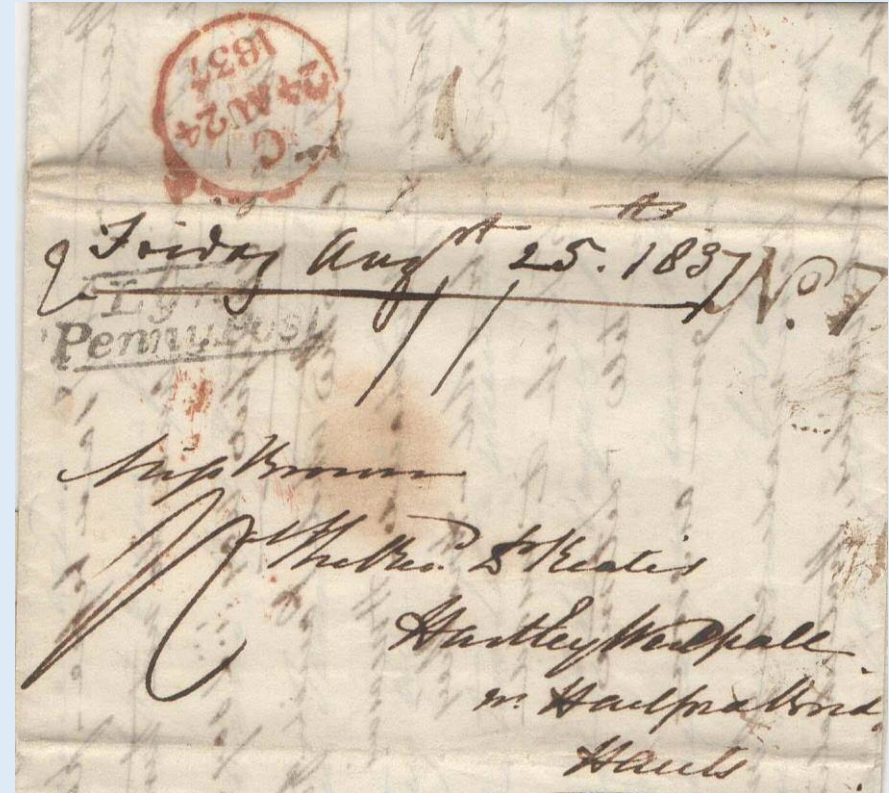 C
24 AU 24
1837
Friday Augst 25th. 1837 No. 7
Lynn
Penny Post
Miss Brown
The Revd Dr Keates
Hartley Westpall
nr Hartford Bridge
Hants